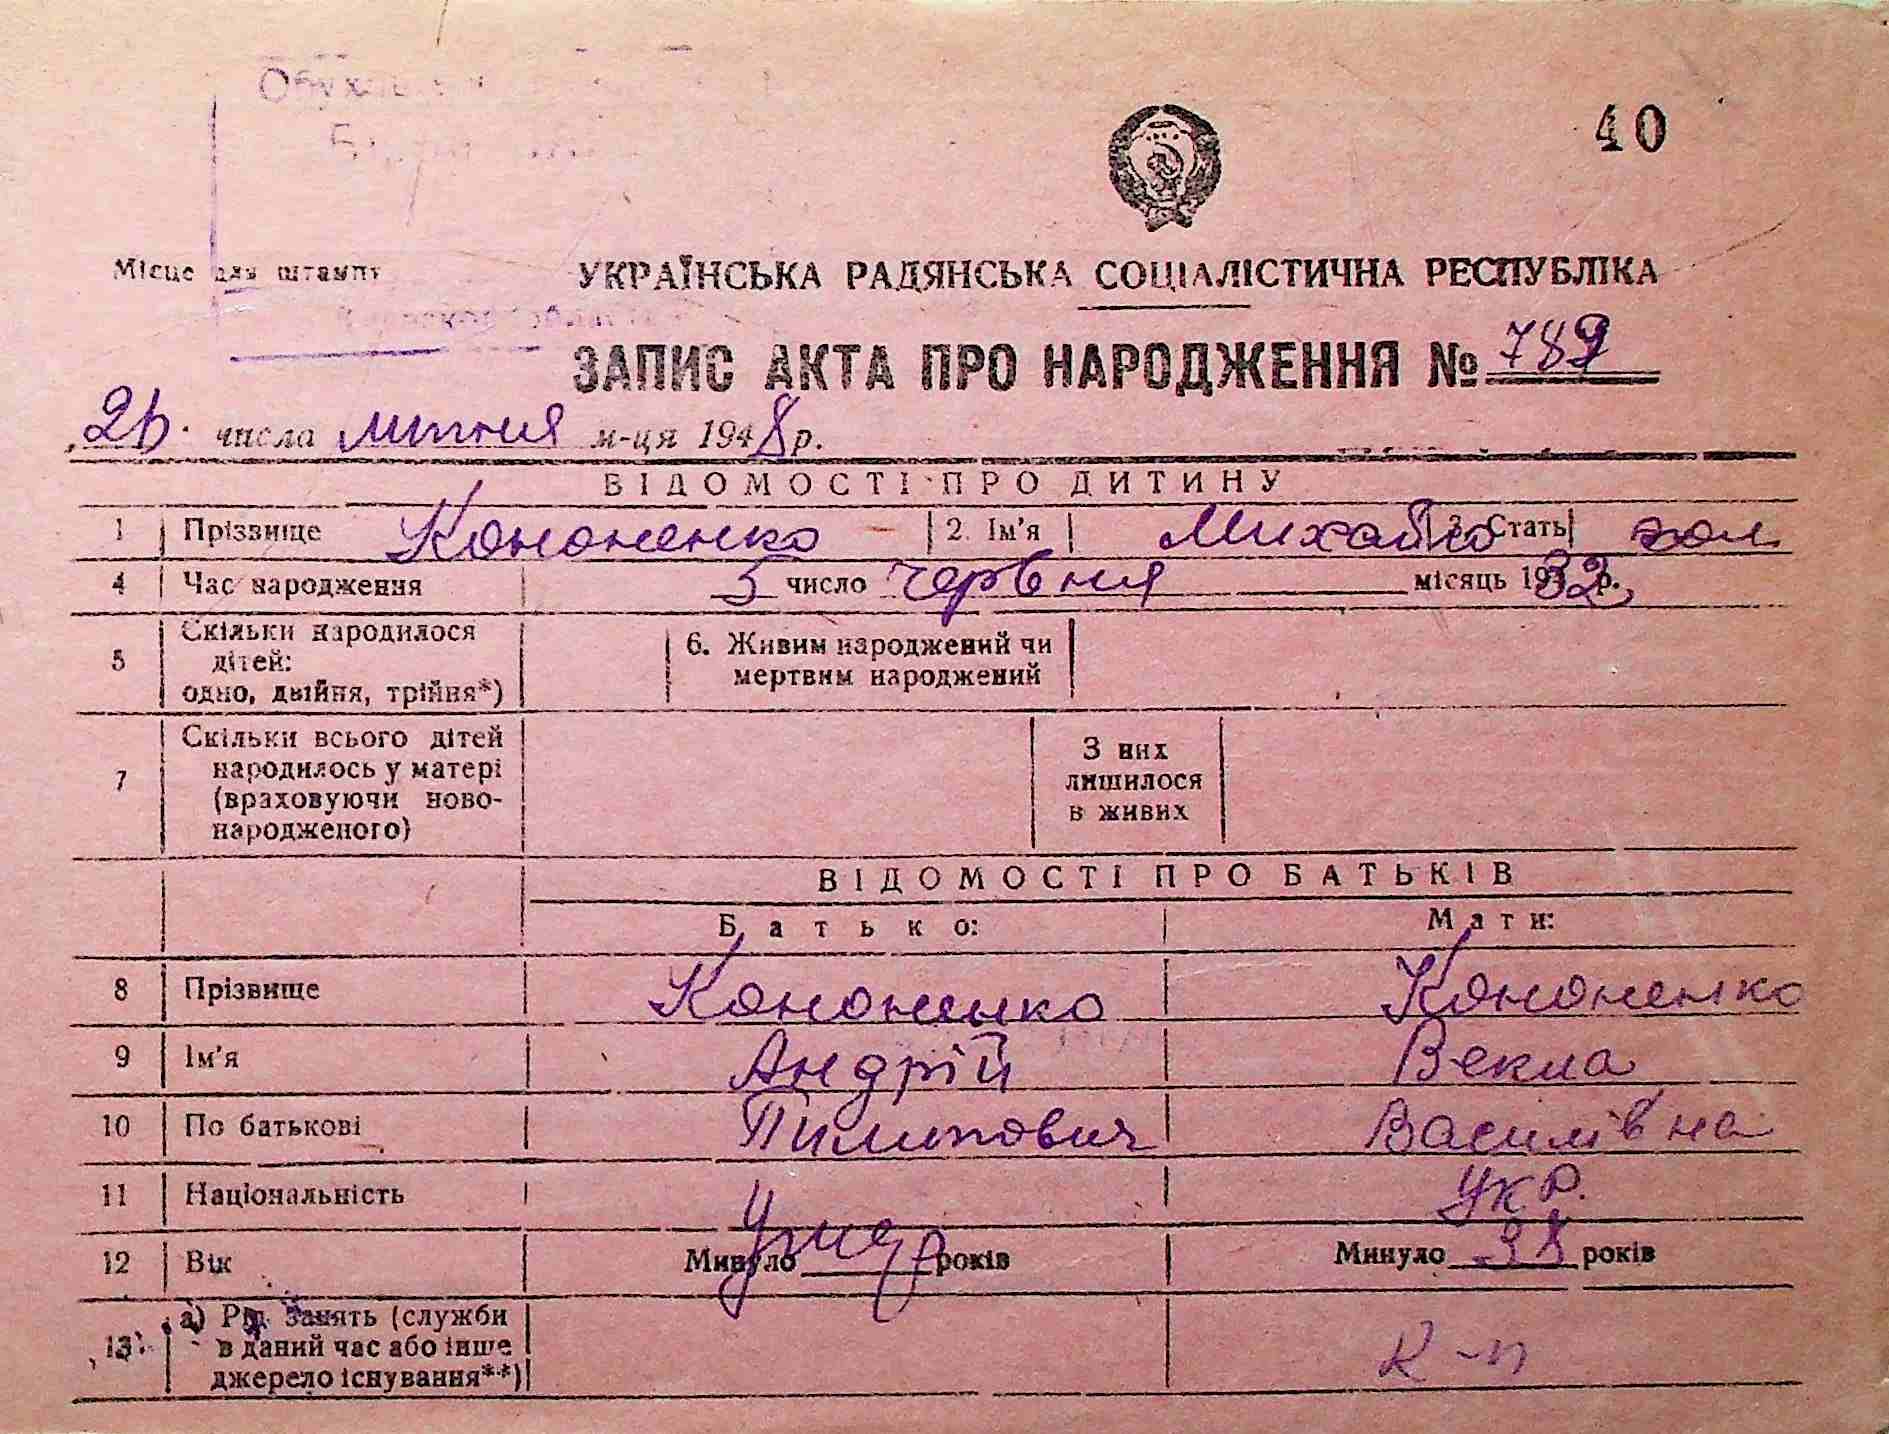 40
Місце для штампу
УКРАЇНСЬКА РАДЯНСЬКА СОЦІАЛІСТИЧНА РЕСПУБЛІКА
ЗАПИС АКТА ПРО НАРОДЖЕННЯ № 789
числа липня м-ця 1948 р.
ВІДОМОСТІ ПРО ДИТИНУ
1 Прізвище Кононенко 2. Ім'я Михайло 3. Стать чол
4 Час народження 5 число червня місяць 1932 р.
5 Скільки народилося дітей: одно, двійня, трійня*) 6. Живим народжений чи мертвим народжений
7 Скільки всього дітей народилось у матері (враховуючи ново-народженого) З них лишилося в живих
ВІДОМОСТІ ПРО БАТЬКІВ
Батько: Мати:
8 Прізвище Кононенко Кононенко
9 Ім'я Андрій Векла
10 По батькові Пилипович Василівна
11 Національність укр.
12 Вік Минуло умер років Минуло 38 років
13 а) Рід занять (служби в даний час або інше джерело існування**) к-п